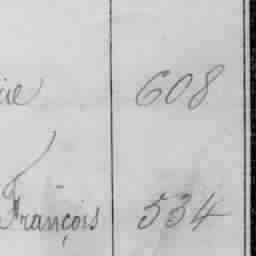 608
François 534